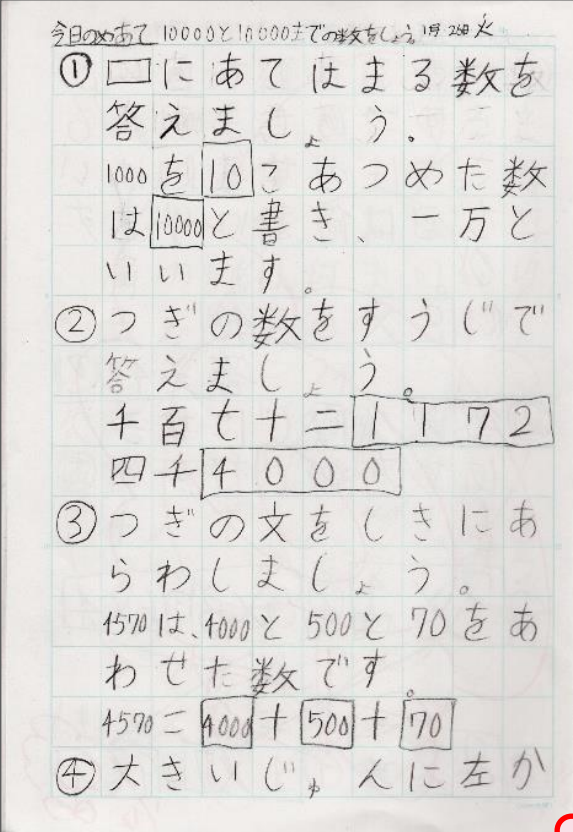 今日のめあて 10000と10000までの数をしょう。1月26日火
① □にあてはまる数を
答えましょう。
1000を10こあつめた数
は10000と書き、一万と
いいます。
② つぎの数をすうじで
答えましょう。
千百七十二 1172
四千 4000
③ つぎの文をしきにあ
らわしましょう。
4570は、4000と500と70をあ
わせた数です。
4570=4000+500+70
④ 大きいじゅんに左か